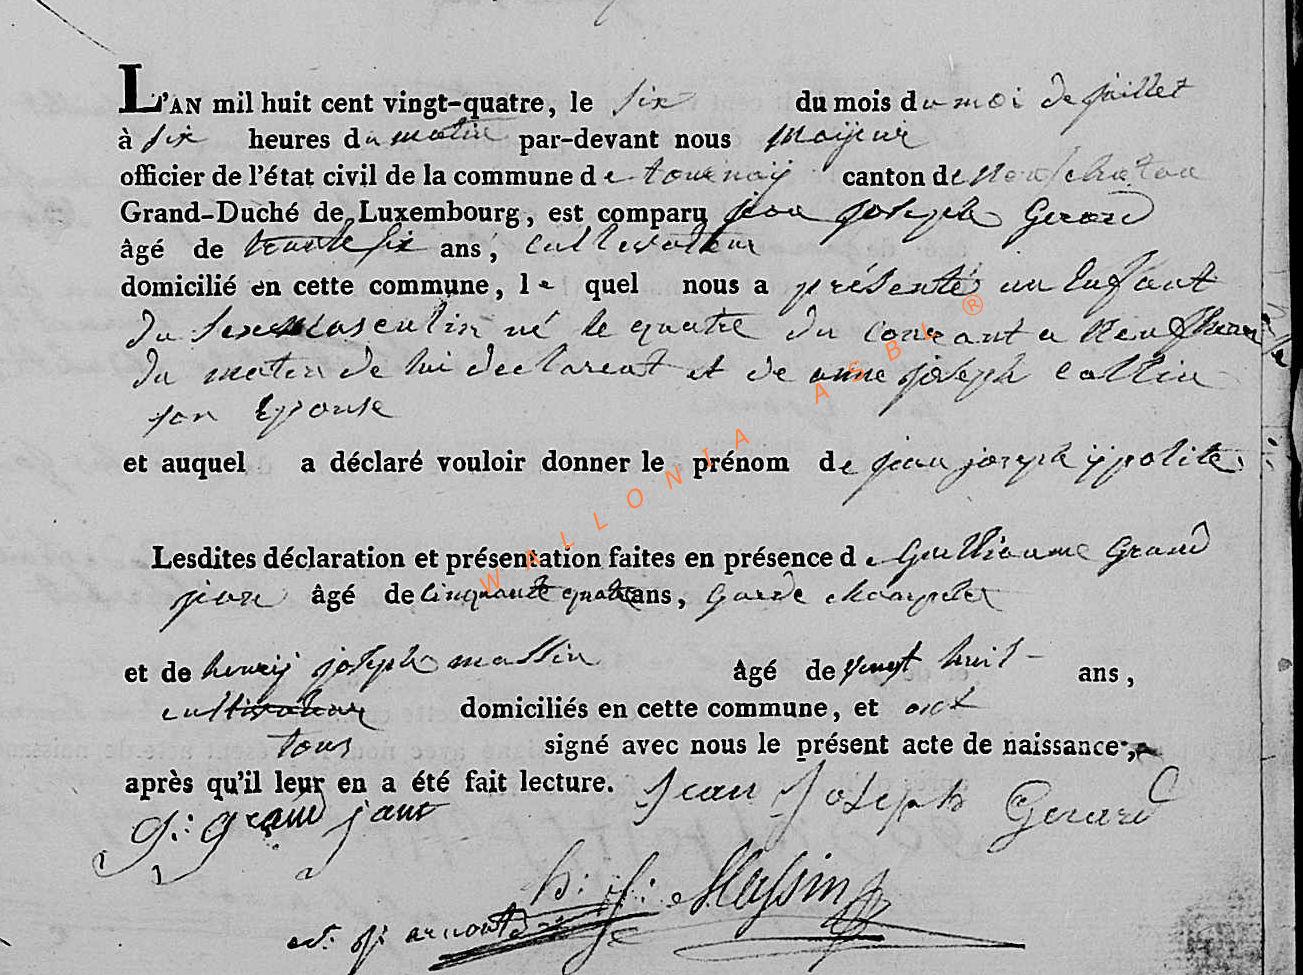 L'AN mil huit cent vingt-quatre, le six du mois du moi de juillet
à six heures du matin par-devant nous mayeur
officier de l'état civil de la commune de tournay canton de neufchateau
Grand-Duché de Luxembourg, est comparu jean joseph Gerard
âgé de trente six ans, cultivateur
domicilié en cette commune, le quel nous a présenté un Enfant
du sexe Masculin né le quatre du courant a neuf heure
du matin de lui declarent et de anne joseph collin
son Epouse
et auquel a déclaré vouloir donner le prénom de jean joseph ippolite
Lesdites déclaration et présentation faites en présence de Guilliaume Grand
jean âgé de cinquante quatre ans, garde champetre
et de henry joseph massin âgé de vingt huit ans,
cultivateur domiciliés en cette commune, et ont
tous signé avec nous le présent acte de naissance,
après qu'il leur en a été fait lecture. Jean Joseph Gerard
g: grand jant
h: j: Massin
WALLONIA ASBL ®